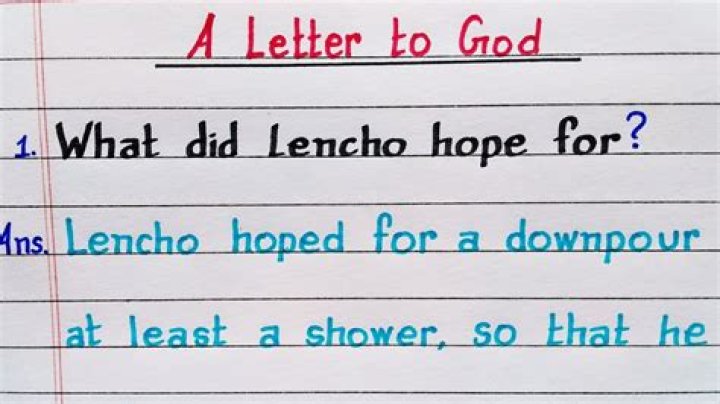 A Letter to God
1. What did Lencho hope for?
Ans. Lencho hoped for a downpour
at least a shower, so that he